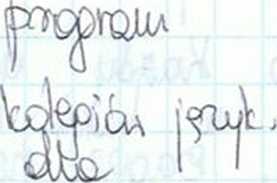 program
kolegiów język.
dla